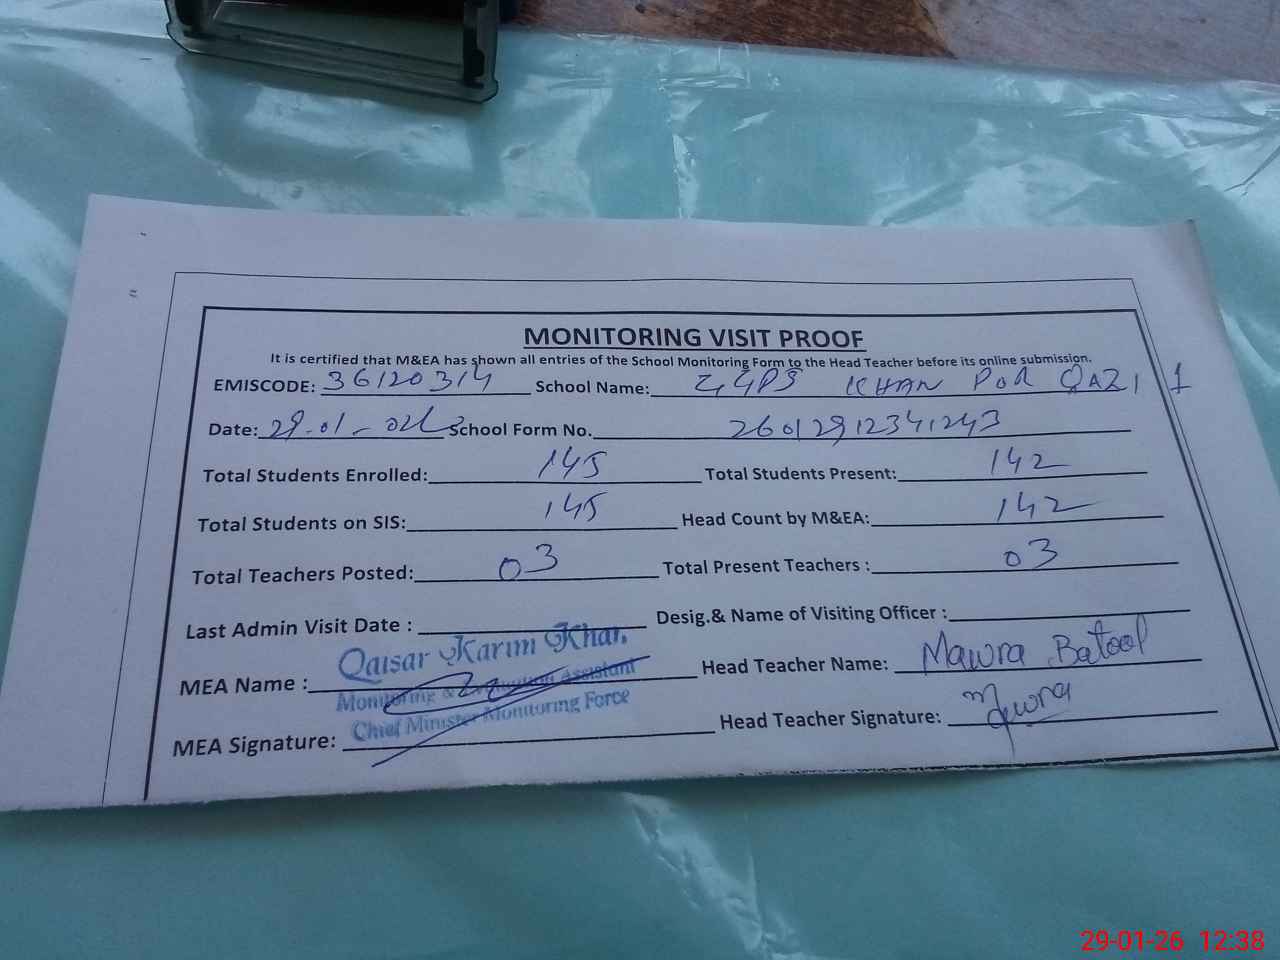 MONITORING VISIT PROOF
It is certified that M&EA has shown all entries of the School Monitoring Form to the Head Teacher before its online submission.
EMISCODE: 36120314 School Name: GGPS KHAN POR QAZI 1
Date: 29-01- School Form No. 26012912341243
Total Students Enrolled: 145 Total Students Present: 142
Total Students on SIS: 145 Head Count by M&EA: 142
Total Teachers Posted: 03 Total Present Teachers : 03
Last Admin Visit Date : Desig.& Name of Visiting Officer :
MEA Name : Qaisar Karim Khan Head Teacher Name: Mawra Batool
Monitoring & Evaluation Assistant
Chief Minister Monitoring Force
MEA Signature: Head Teacher Signature: Mawra
29-01-26 12:38